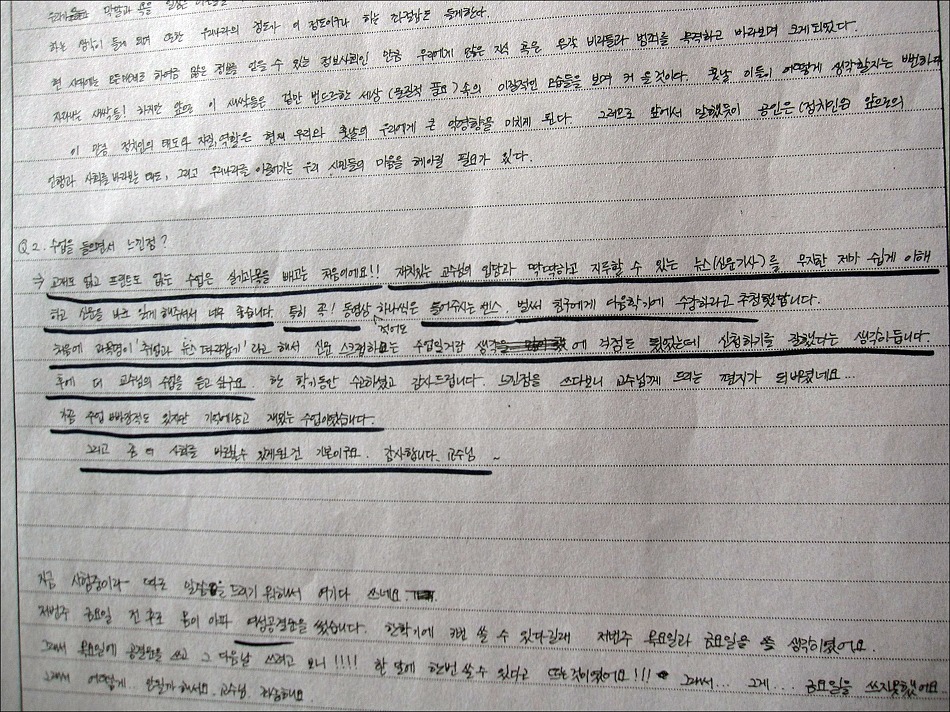 하는 생각이 들게 되며 또한 우리나라의 정도가 이 정도이구나 하는 좌절감도 들게한다.
현 시대에는 하여금 많은 정보를 얻을 수 있는 정보사회인 만큼 우리에게 많은 지식 혹은 온갖 비리들과 범죄를 목격하고 바라보며 크게되었다.
자라나는 새싹들! 하지만 앞으로 이 새싹들은 겉만 번드르한 세상 (물질적 풍요) 속의 이질적인 모습들을 보며 커 올것이다. 훗날 이들이 어떻게 생각할지는 뻔하다
이 만큼 정치인의 태도와 자질, 역할은 현재 우리와 훗날의 우리에게 큰 악영향을 미치게 된다. 그러므로 앞에서 말했듯이 공인은 (정치인은) 앞으로의
언행과 사회를 바라보는 태도, 그리고 우리나라를 이끌어가는 우리 시민들의 마음을 헤아릴 필요가 있다.
Q2. 수업을 들으면서 느낀점?
⇒ 교재도 없고 프린트도 없는 수업은 실기과목을 빼고는 처음이에요!! 재치있는 교수님의 입담과 딱딱하고 지루할 수 있는 뉴스(신문기사)를 무지한 제가 쉽게 이해
하고 신문을 보고 읽게 해주셔서 너무 좋습니다. 특히 꼭! 동영상 하나씩은 틀어주시는 센스. 벌써 친구에게 다음학기에 수강하라고 추천했답니다.
적어도
처음에 과목명이 '취업과 뉴스 따라잡기' 라고 해서 신문 스크랩하는 수업일거란 생각에 걱정도 됬었는데 신청하기를 잘했다는 생각이듭니다.
후에 더 교수님의 수업을 듣고 싶구요. 한 학기동안 수고하셨고 감사드립니다. 느낀점을 쓰다보니 교수님께 드리는 편지가 되버렸네요...
가끔 수업 빠진적도 있지만 기억에남고 재밌는 수업이였습니다.
그리고 좀 더 사회를 바로볼수 있게된건 기본이구요. 감사합니다. 교수님 ~
지금 시험중이라 따로 말씀을 드리기 위해서 여기다 쓰네요.
저번주 금요일 전후로 몸이 아파 여성공결을 썼습니다. 한학기에 3번 쓸 수 있다길래 저번주 목요일과 금요일을 쓸 생각이였어요.
그래서 목요일에 공결을 쓰고 그 다음날 쓰려고 보니!!!! 한 달에 한번 쓸 수 있다고 뜨는것이였어요!!! 그래서... 그게... 금요일을 쓰지못했어요
그래서 어떻게.. 안될까 해서요. 교수님. 죄송해요